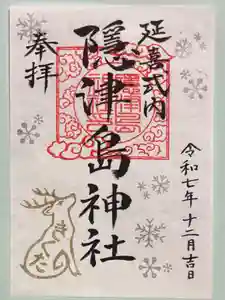 延喜式内
奉拝
隠津島神社
令和七年十二月吉日